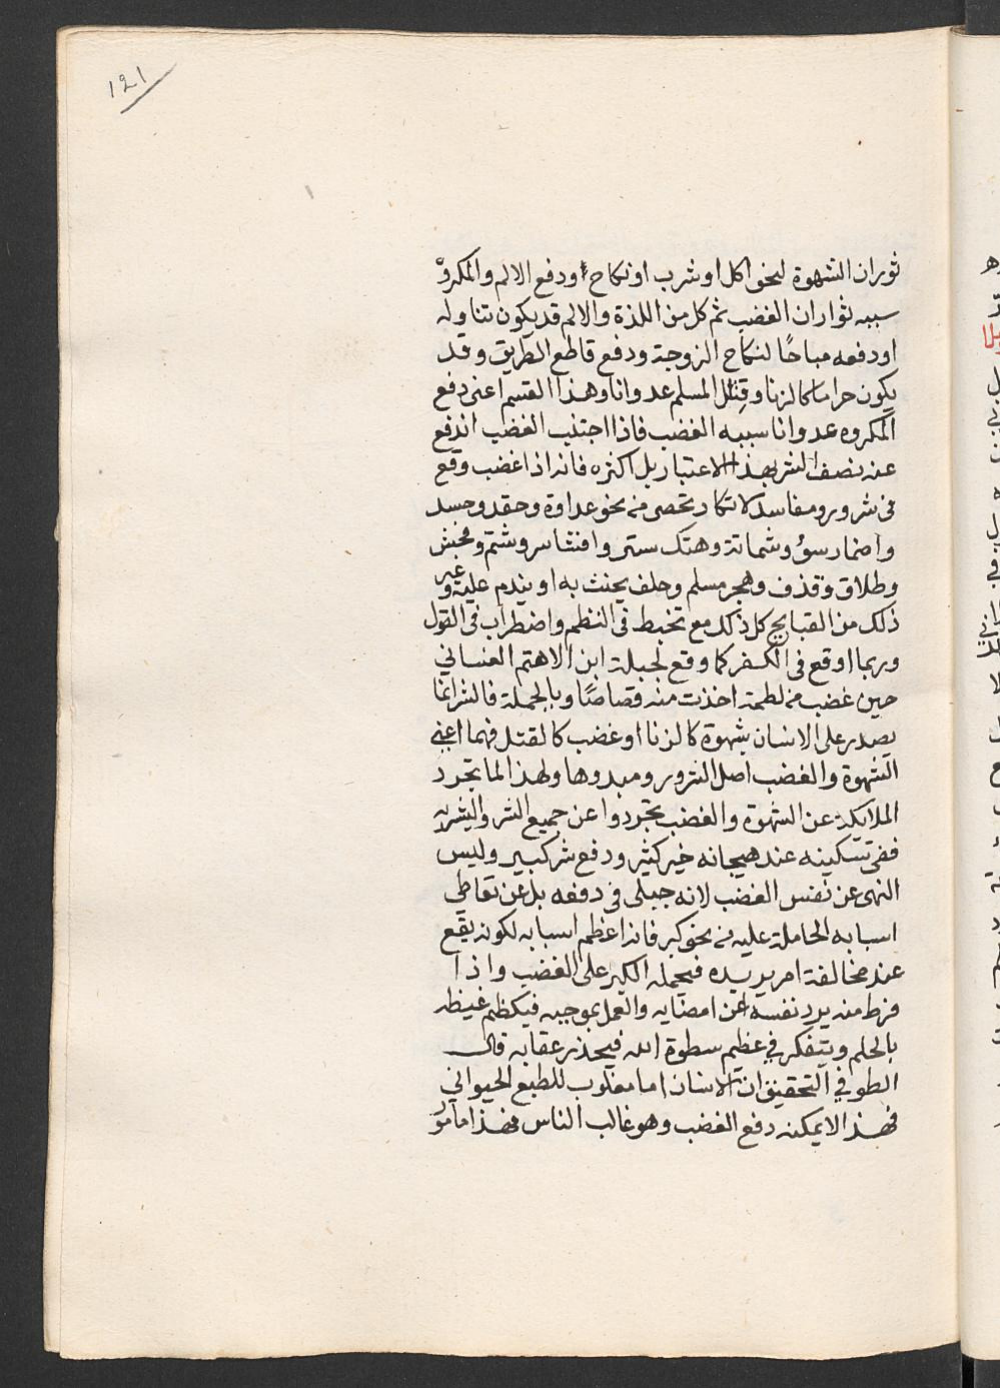 ١٤١
ثوران الشهوة لنحو اكل او شرب او نكاح او دفع الالم والمكروه
سببه ثواران الغضب ثم كل من اللذة والالم قد يكون تناوله
او دفعه مباحًا لنكاح الزوجة ودفع قاطع الطريق وقد
يكون حراما كالزنا وقتل المسلم عدوانا وهذا القسم اعنى دفع
المكروه عدوانا سببه الغضب فاذا اجتنب الغضب اندفع
عنه نصف الشر بهذا الاعتبار بل اكثره فانه اذا غضب وقع
فى شرور ومفاسد لا تكاد تحصى من نحو عداوة وحقد وحسد
واضمار سؤ وشماتة وهتك ستر وافشا سر وشتم وفحش
وطلاق وقذف وهجر مسلم وحلف يحنث به او يندم عليه وغير
ذلك من القبايح كل ذلك مع تخبط فى النظم واضطراب فى القول
وربما اوقع فى الكفر كما وقع لجبلة ابن الاهتم الغسانى
حين غضب من لطمة اخذت منه قصاصًا وبالجملة فالشر انما
يصدر على الانسان بشهوة كالزنا او غضب كالقتل فهما اعنى
الشهوة والغضب اصل الشرور ومبدوها ولهذا لما تجرد
الملايكة عن الشهوة والغضب تجردوا عن جميع الشر والبشرية
ففى تسكينه عند هيجانه خير كثير ودفع شر كبير وليس
النهى عن نفس الغضب لانه جبلى فى دفعه بل عن تعاطى
اسبابه الحاملة عليه من نحو كبر فانه اعظم اسبابه لكونه يقع
عند مخالفة امر يريده فيحمله الكبر على الغضب واذا
فرط منه يرد نفسه عن امضايه والعمل بموجبه فيكظم غيظه
بالحلم ويتفكر في عظم سطوة الله فيحذر عقابه قال
الطوفي التحقيق ان الانسان اما مغلوب للطبع الحيوانى
فهذا لا يمكنه دفع الغضب وهو غالب الناس فهذا مامور